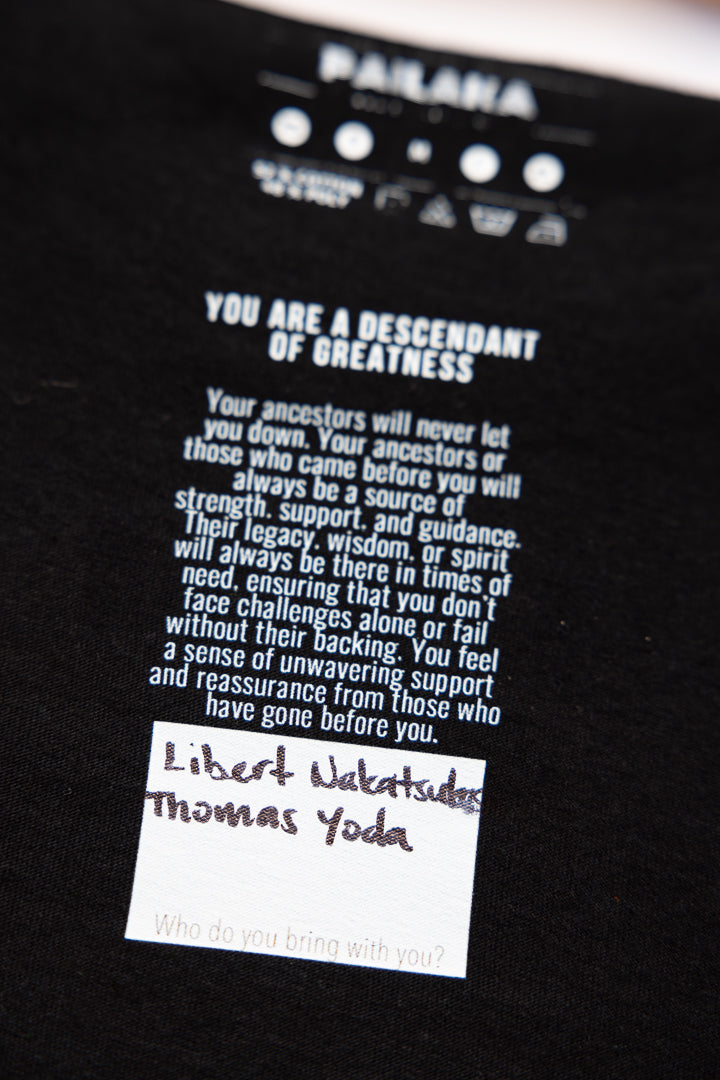 PAILAKA
M
YOU ARE A DESCENDANT
OF GREATNESS
Your ancestors will never let
you down. Your ancestors or
those who came before you will
always be a source of
strength, support, and guidance.
Their legacy, wisdom, or spirit
will always be there in times of
need, ensuring that you don't
face challenges alone or fail
without their backing. You feel
a sense of unwavering support
and reassurance from those who
have gone before you.
Libert
Thomas Yoda
Who do you bring with you?